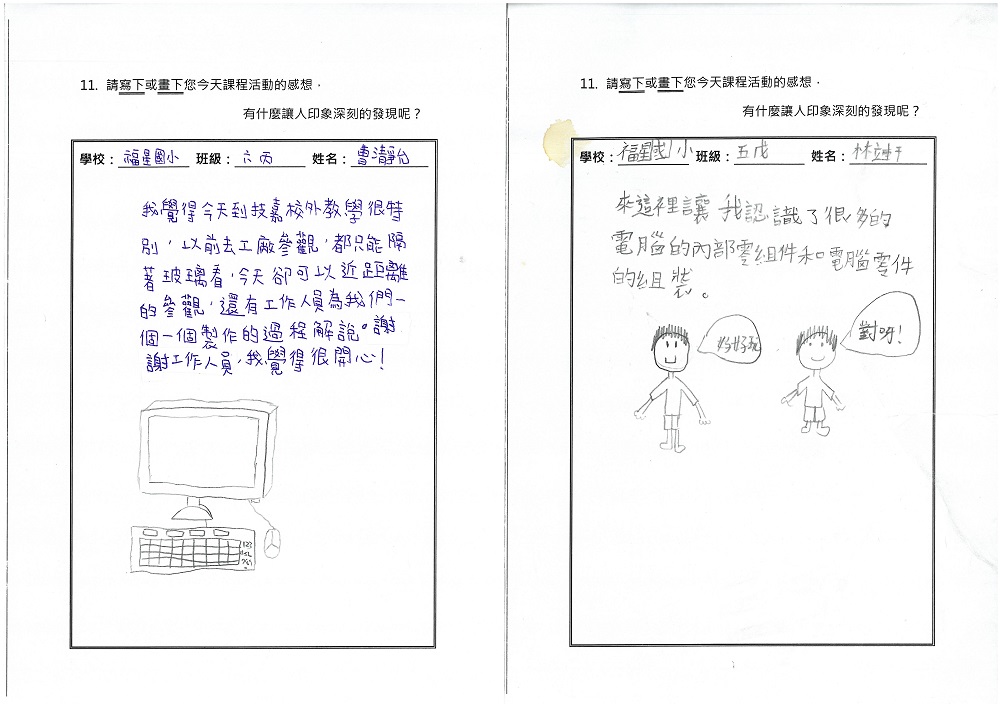 11. 請寫下或畫下您今天課程活動的感想，
有什麼讓人印象深刻的發現呢？
學校：福星國小 班級：六丙 姓名：曹清靜怡
我覺得今天到技嘉校外教學很特
別，以前去工廠參觀，都只能隔
著玻璃看，今天卻可以近距離
的參觀，還有工作人員為我們一
個一個製作的過程解說。謝
謝工作人員，我覺得很開心！
11. 請寫下或畫下您今天課程活動的感想，
有什麼讓人印象深刻的發現呢？
學校：福星國小 班級：五戊 姓名：林
來這裡讓我認識了很多的
電腦的內部零組件和電腦零件
的組裝。
好好玩
對呀！